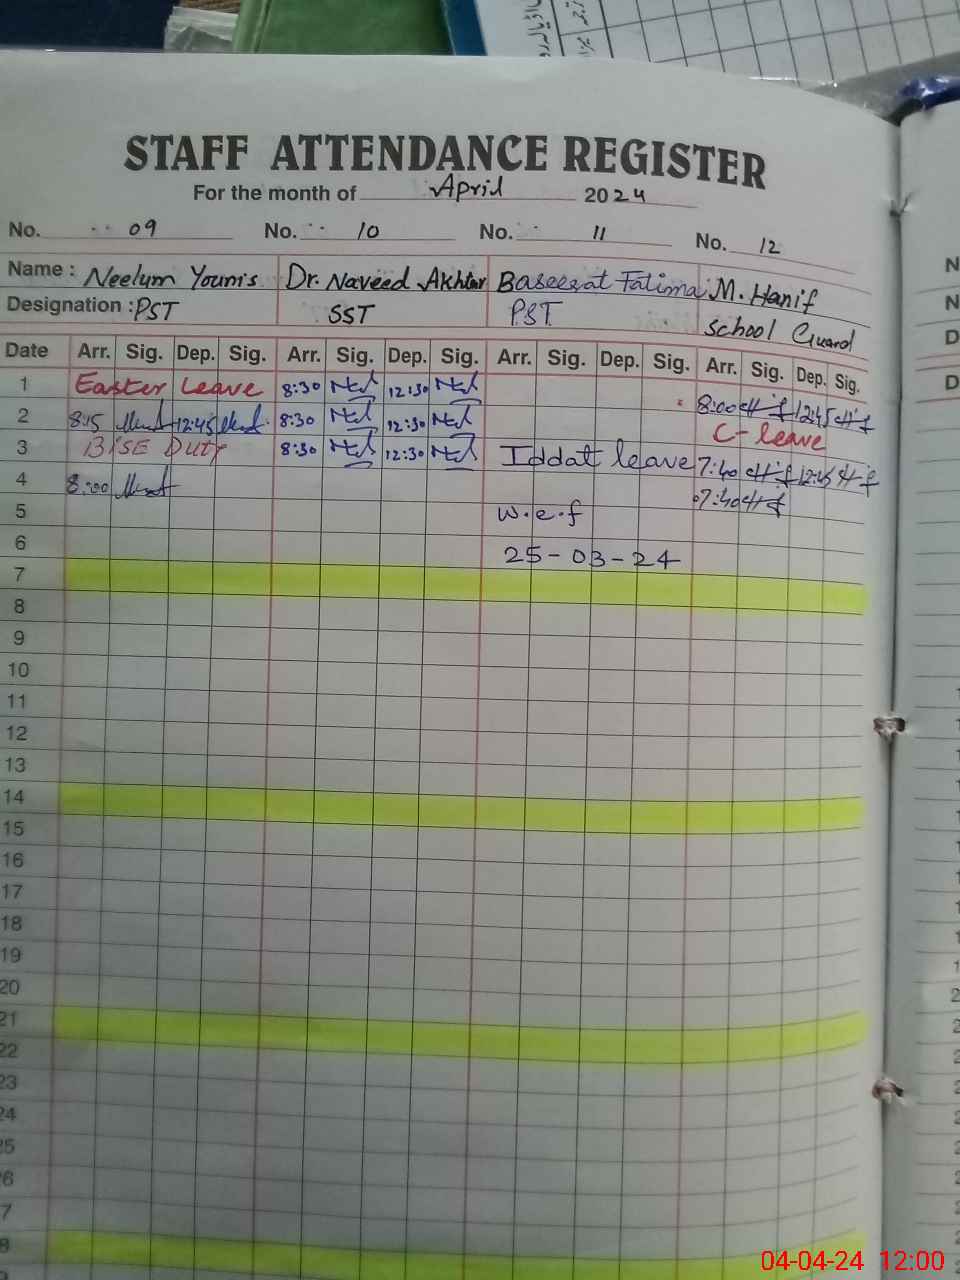 STAFF ATTENDANCE REGISTER
For the month of April 2024
No. 09 No. 10 No. 11 No. 12
Name : Neelum Younis Dr. Naveed Akhtar Baseerat Fatima M. Hanif
Designation : PST SST PST School Guard
Date Arr. Sig. Dep. Sig. Arr. Sig. Dep. Sig. Arr. Sig. Dep. Sig. Arr. Sig. Dep. Sig.
1 Easter Leave 8:30 12:30 8:00 12:45
2 8:15 12:45 8:30 12:30 C-leave
3 BISE Duty 8:30 12:30 Iddat leave 7:40 12:45
4 8:00 07:40
5 w.e.f
6 25-03-24
7
8
9
10
11
12
13
14
15
16
17
18
19
20
21
22
23
24
25
26
7
8
04-04-24 12:00